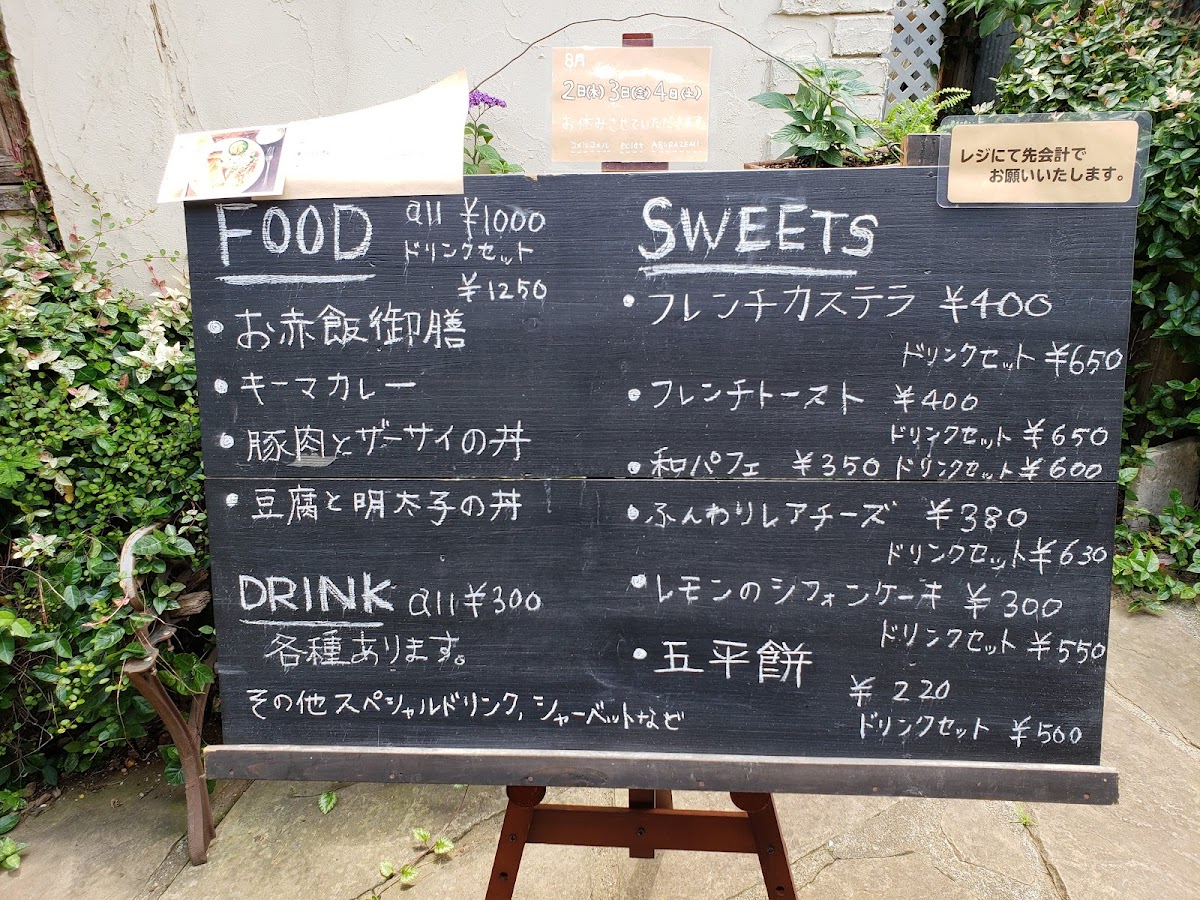 8月
2日(木)3日(金)4日(土)
お休みさせていただきます
レジにて先会計で
お願いいたします。
FOOD all ¥1000
ドリンクセット
¥1250
・お赤飯御膳
・キーマカレー
・豚肉とザーサイの丼
・豆腐と明太子の丼
DRINK all ¥300
各種あります。
その他スペシャルドリンク,シャーベットなど
SWEETS
・フレンチカステラ ¥400
ドリンクセット ¥650
・フレンチトースト ¥400
ドリンクセット ¥650
・和パフェ ¥350 ドリンクセット ¥600
・ふんわりレアチーズ ¥380
ドリンクセット ¥630
・レモンのシフォンケーキ ¥300
ドリンクセット ¥550
・五平餅
¥220
ドリンクセット ¥500